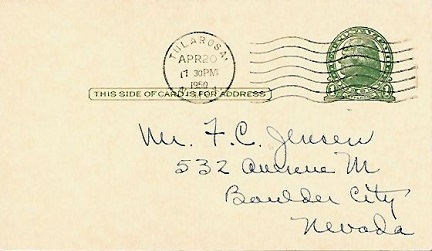 TULAROSA
APR 20
1 30 PM
1950
THIS SIDE OF CARD IS FOR ADDRESS
Mr. F. C. Jensen
532 Avenue M
Boulder City
Nevada